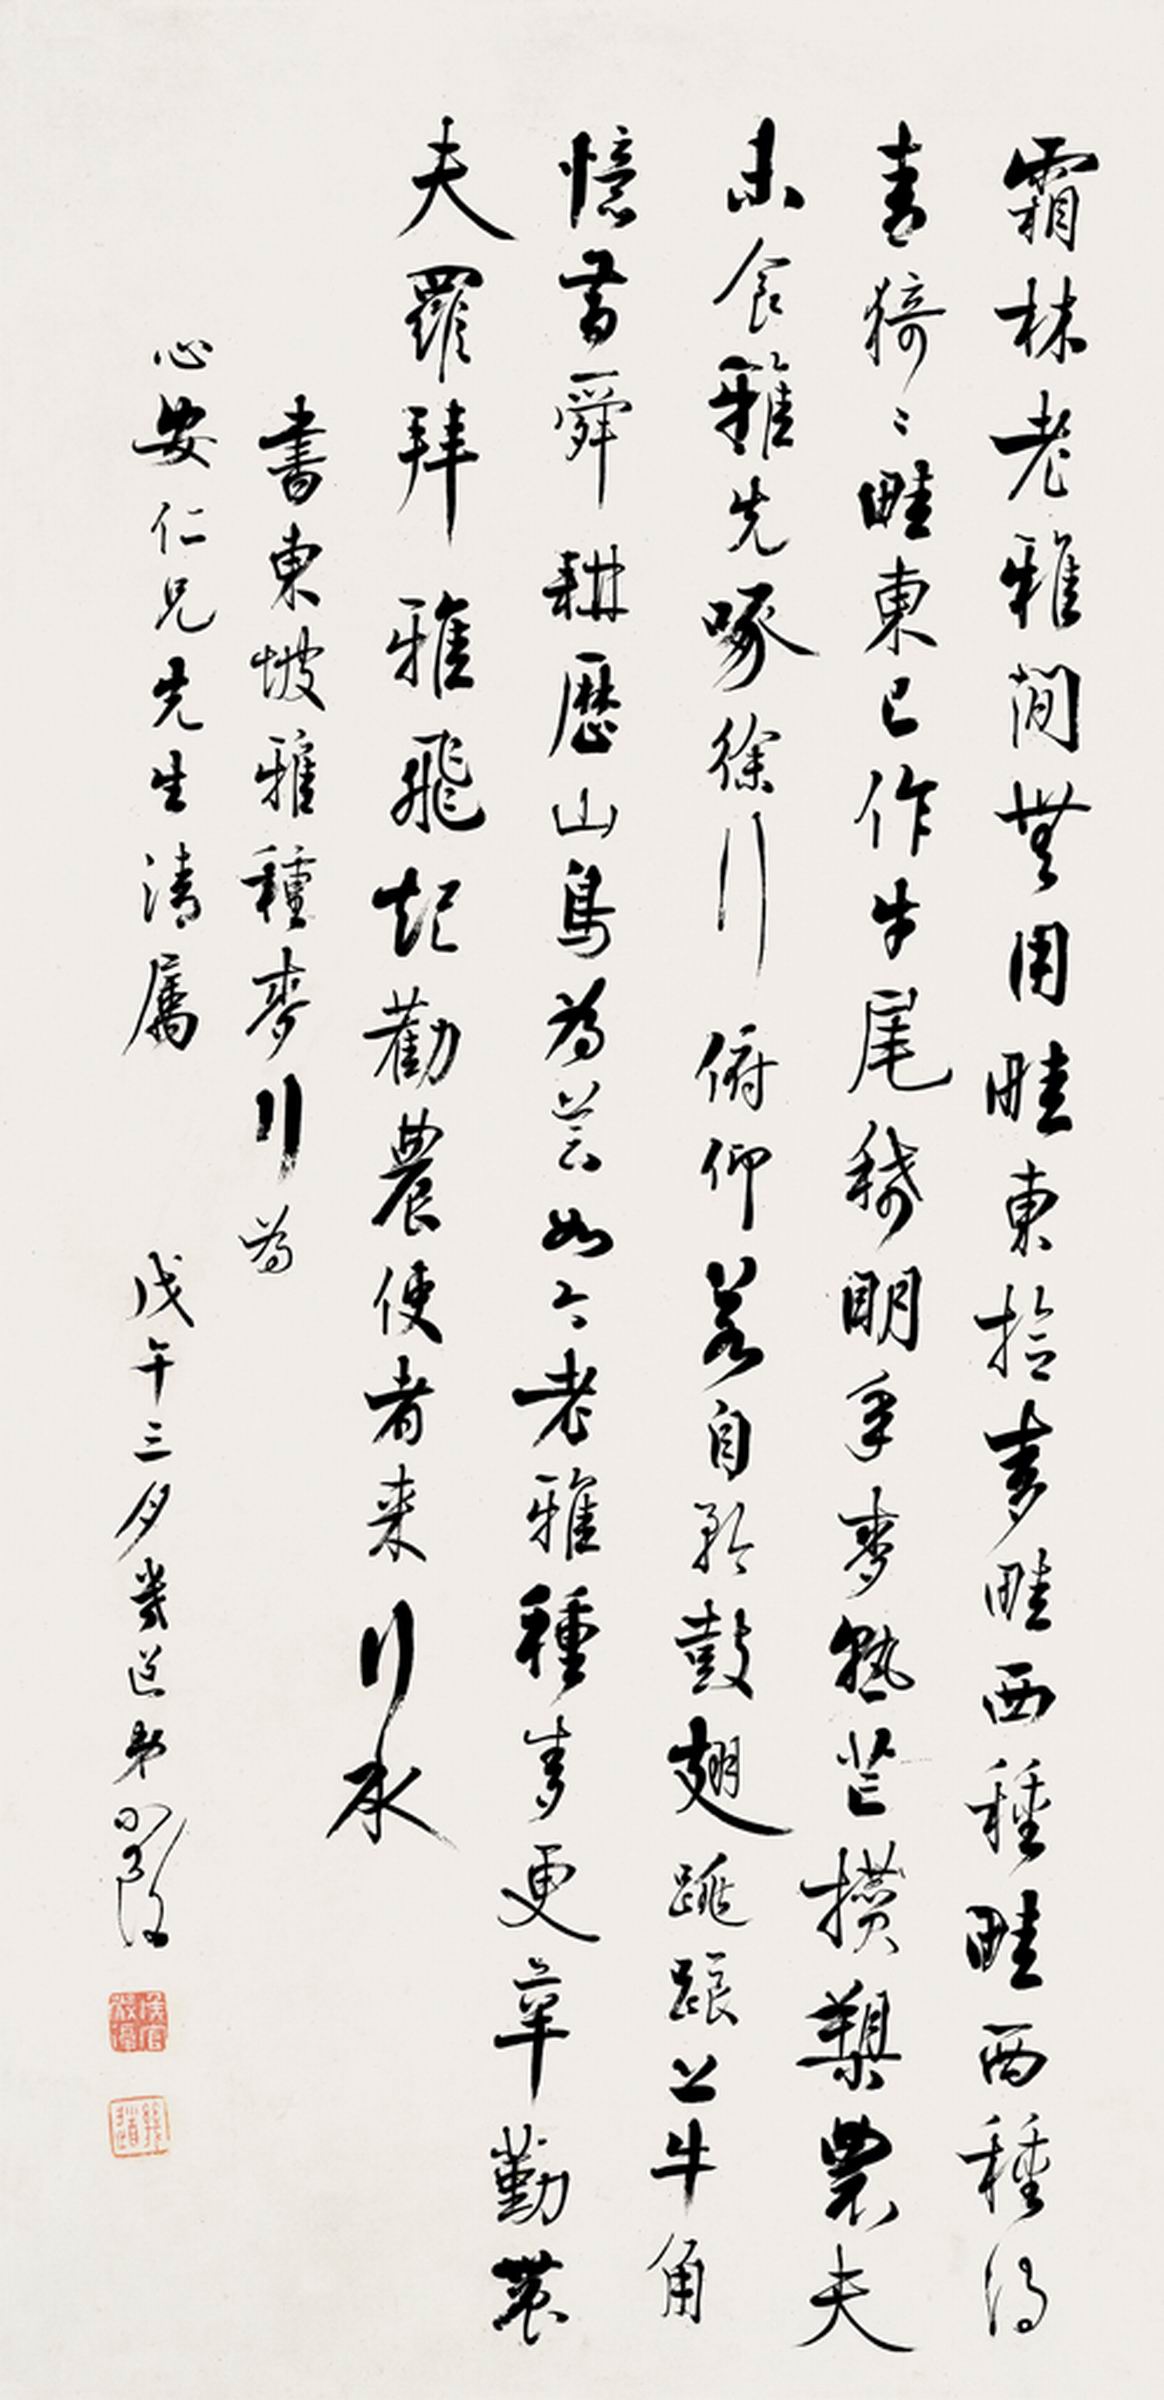 霜林老雅閒無用畦東拾麥畦西種畦西種得
青猗〻畦東已作牛尾稀明年麥熟芒攢槊農夫
未食雅先啄徐行俯仰若自矜鼓翅跳踉上牛角
憶昔舜耕歷山鳥為芸如今老雅種麥更辛勤農
夫羅拜雅飛起勸農使者来行水
書東坡雅種麥行為
心安仁兄先生清屬
戊午三夕幾道弟嚴復